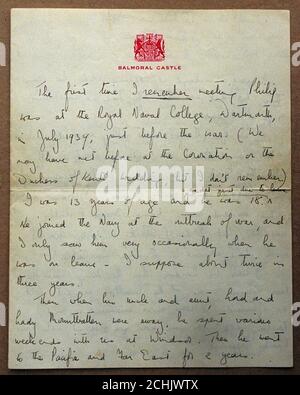 BALMORAL CASTLE
The first time I remember meeting Philip
was at the Royal Naval College, Dartmouth,
in July 1939, just before the war. (We
may have met before at the Coronation or the
Duchess of Kent's wedding, but I don't remember).
I was 13 years of age and he was 18
He joined the Navy at the outbreak of war, and
I only saw him very occasionally when he
was on leave - I suppose about twice in
three years.
Then when his uncle and aunt, Lord and
Lady Mountbatten were away, he spent various
weekends with us at Windsor. Then he went
to the Pacific and Far East for 2 years.
alamy
Image ID: 2CHJWTX
www.alamy.com